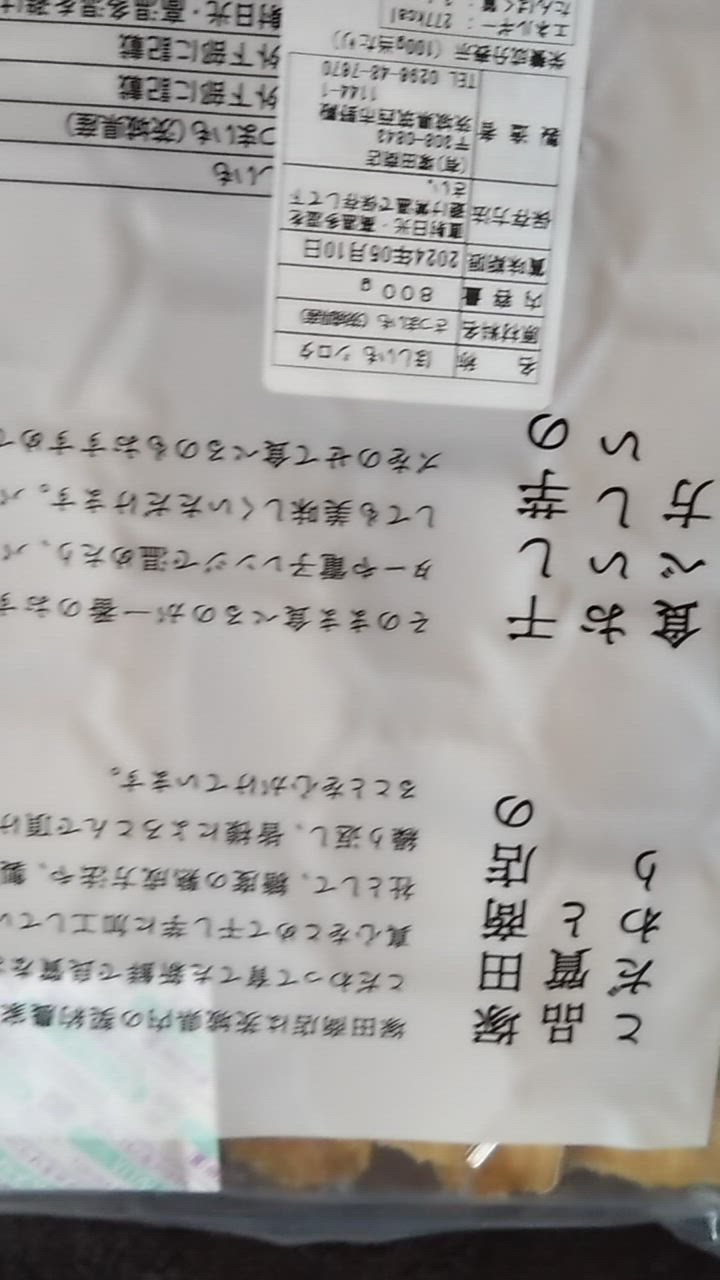 塚田商店の
品質と
こだわり
塚田商店は茨城県内の契約農家
こだわって育てた新鮮で良質な
真心をこめて干し芋に加工してい
社として、糖度の熟成方法や、製
繰り返し、皆様によろこんで頂け
ることを心がけています。
干し芋の
おいしい
食べ方
そのまま食べるのが一番のおす
ターや電子レンジで温めたり、バ
しても美味しくいただけます。バ
スをのせて食べるのもおすすめで
名称 ほしいも シロタ
原材料名 さつまいも(茨城県産)
内容量 800g
賞味期限 2024年05月10日
保存方法 直射日光・高温多湿を
避け常温で保存して下
さい。
製造者 (有)塚田商店
〒308-0843
茨城県筑西市野殿
1144-1
TEL 0296-48-7670
栄養成分表示(100g当たり)
エネルギー:277kcal
たんぱく質:
しいも
つまいも(茨城県産)
外下部に記載
外下部に記載
射日光・高温多湿を避け